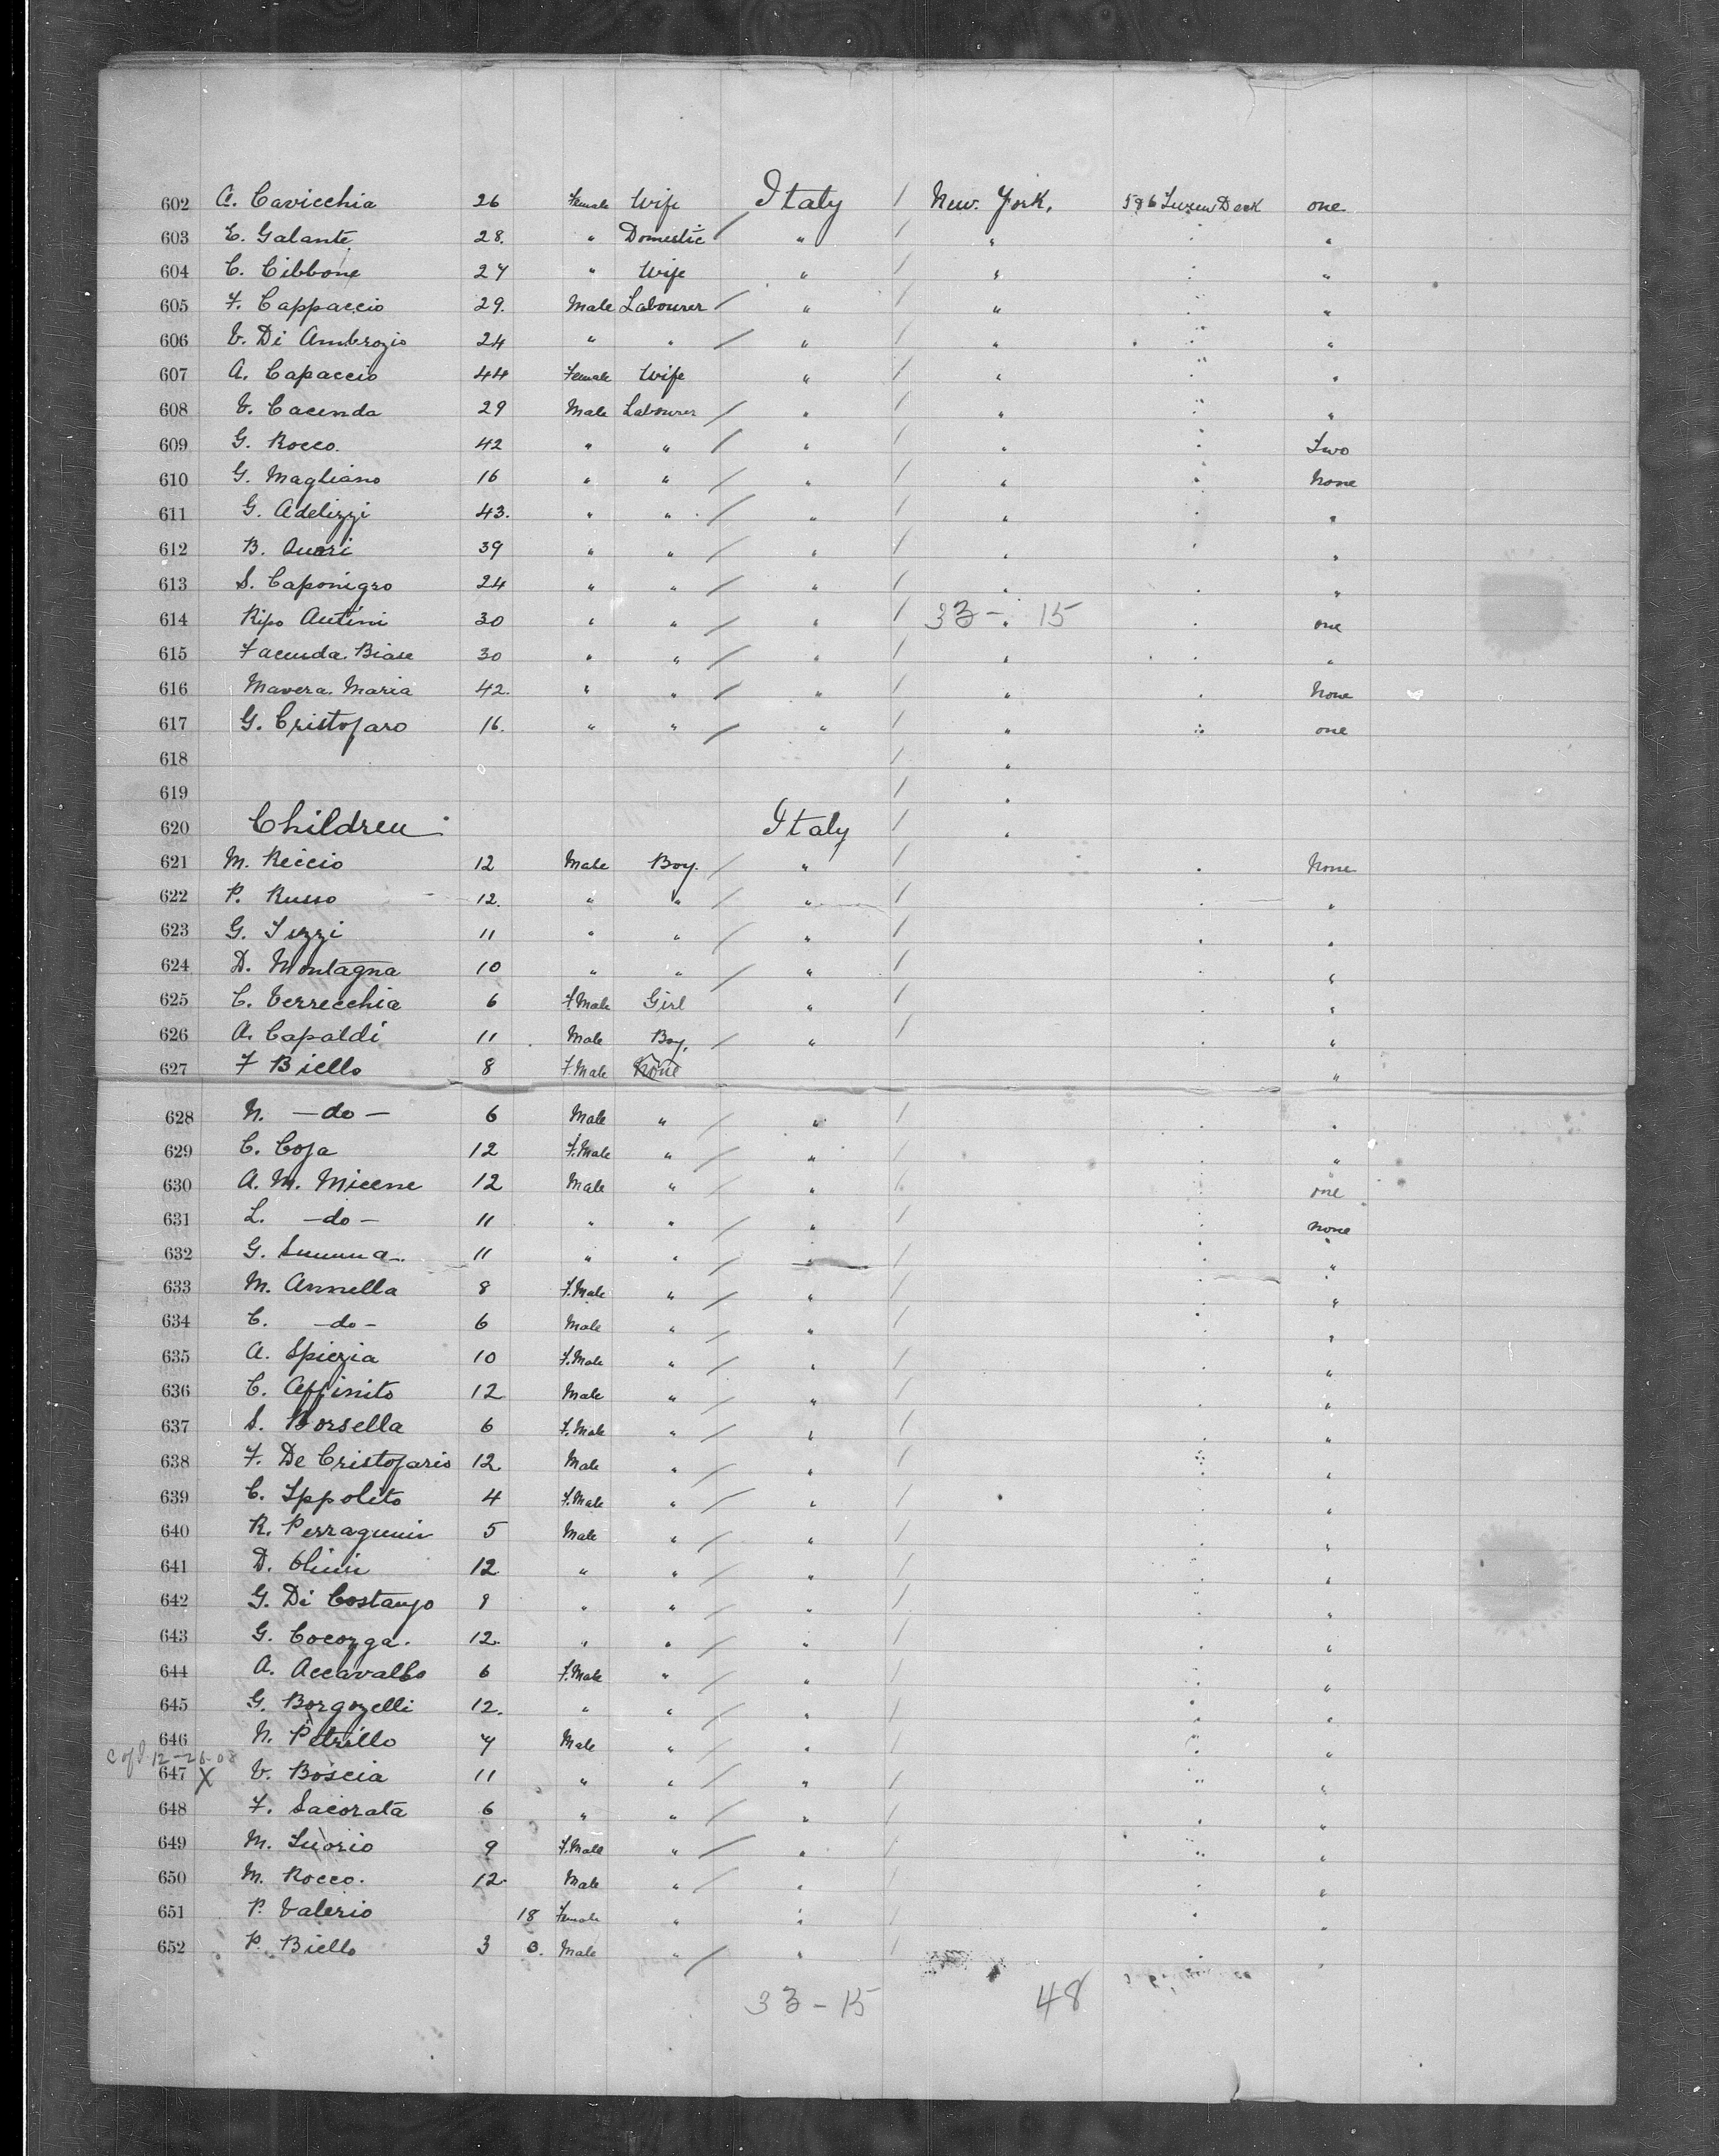 602 A. Cavicchia 26 Female Wife Italy / New York. 5 & 6 Deck one
603 E. Galante 28. " Domestic / " / " " "
604 C. Cibbone 27 " Wife " / " " "
605 F. Cappaccio 29. Male Labourer / " / " " "
606 V. Di Ambrozio 24 " " / " / " " "
607 A. Capaccio 44 Female Wife " / " " "
608 V. Cacenda 29 Male Labourer / " / " " "
609 G. Rocco. 42 " " / " / " " Two
610 G. Magliano 16 " " / " / " " None
611 G. Adelizzi 43. " " / " / " " "
612 B. 39 " " / " / " " "
613 S. Caponigro 24 " " / " / " " "
614 Ripo Autini 30 " " / " / 33 - " 15 " one
615 Facenda Biase 30 " " / " / " " "
616 Mavera. Maria 42. " " / " / " " None
617 G. Cristofaro 16. " " / " / " " one
618 / "
619 / "
620 Children Italy / "
621 M. Riccio 12 Male Boy. / " / " None
622 P. Russo 12. " " / " / " "
623 G. Iuzzi 11 " " / " / " "
624 D. Montagna 10 " " / " / " "
625 C. Verrecchia 6 F.Male Girl " / " "
626 A. Capaldi 11 Male Boy. / " / " "
627 F Biello 8 F.Male None "
628 N. - do - 6 Male " / " / " "
629 C. Coja 12 F.Male " / " / " "
630 A. M. Micene 12 Male " / " / " one
631 L. - do - 11 " " / " / " none
632 G. Summa 11 " " / " / " "
633 M. Annella 8 F.Male " / " / " "
634 C. - do - 6 Male " / " / " "
635 A. Spiezia 10 F.Male " / " / " "
636 C. Affinito 12 Male " / " / " "
637 S. Borsella 6 F.Male " / " / " "
638 F. De Cristofaris 12. Male " / " / " "
639 C. Ippolito 4 F.Male " / " / " "
640 R. 5 Male " / " / " "
641 D. 12 " " / " / " "
642 G. Di Costanzo 9 " " / " / " "
643 G. Cocozza. 12. " " / " / " "
644 A. Accavallo 6 F.Male " / " / " "
645 G. Borgozelli 12. " " / " / " "
646 N. Petrillo 7 Male " / " / " "
12-26-08
647 X V. Boscia 11 " " / " / " "
648 F. Sacorata 6 " " / " / " "
649 M. Iuorio 9 F.Male " / " / " "
650 M. Rocco. 12. Male " / " / " "
651 P. Valerio 18 Female " " / " "
652 P. Biello 3 0. Male " / " / " "
33 - 15 48